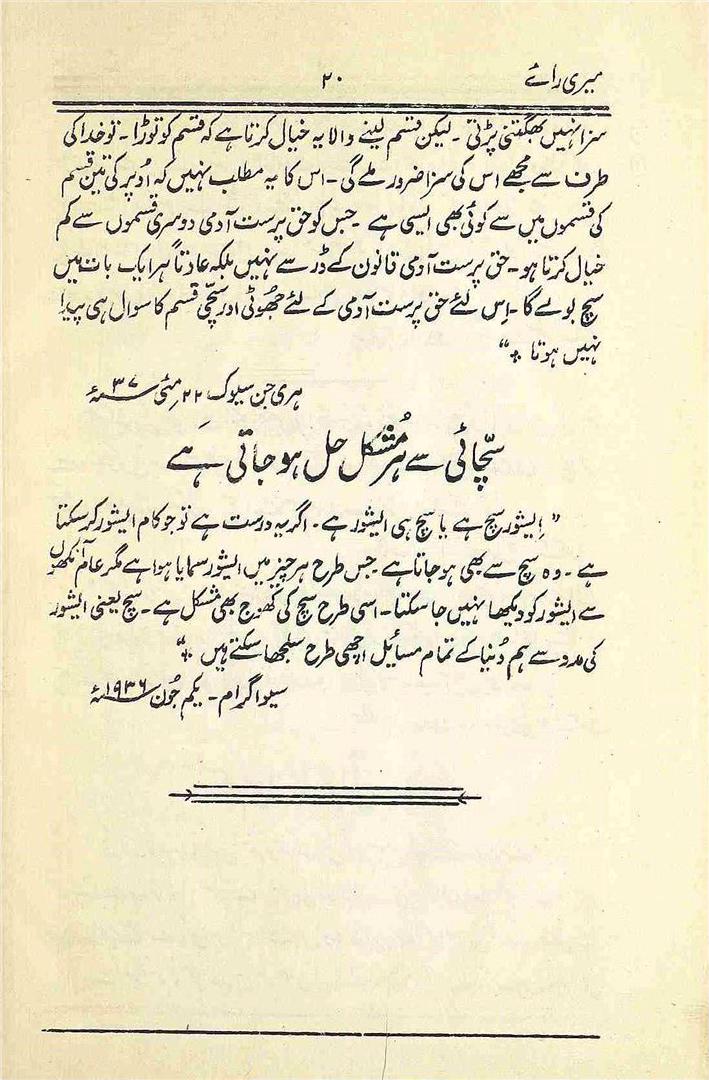 میری رائے ۲۰
سزا نہیں بھگتنی پڑتی ۔ لیکن قسم لینے والا یہ خیال کرتا ہے کہ قسم کو توڑا ۔ تو خدا کی
طرف سے مجھے اس کی سزا ضرور ملے گی ۔ اس کا یہ مطلب نہیں کہ اُوپر کی تین قسم
کی قسموں میں سے کوئی بھی ایسی ہے ۔ جس کو حق پرست آدمی دوسری قسموں سے کم
خیال کرتا ہو ۔ حق پرست آدمی قانون کے ڈر سے نہیں بلکہ عادتاً ہر ایک بات میں
سچ بولے گا ۔ اِس لئے حق پرست آدمی کے لئے جھُوٹی اور سچّی قسم کا سوال ہی پیدا
نہیں ہوتا ۔“
ہری جن سیوک ۲۲ مئی ۳۷ء
سچّائی سے ہر مُشکل حل ہو جاتی ہے
”اِیشور سچ ہے یا سچ ہی ایشور ہے ۔ اگر یہ درست ہے تو جو کام ایشور کر سکتا
ہے ۔ وہ سچ سے بھی ہو جاتا ہے جس طرح ہر چیز میں ایشور سمایا ہوا ہے مگر عام آنکھوں
سے ایشور کو دیکھا نہیں جا سکتا ۔ اسی طرح سچ کی کھوج بھی مشکل ہے ۔ سچ یعنی ایشور
کی مدد سے ہم دُنیا کے تمام مسائل اچھی طرح سلجھا سکتے ہیں ۔“
سیواگرام ۔ یکم جُون ۱۹۳۶ء